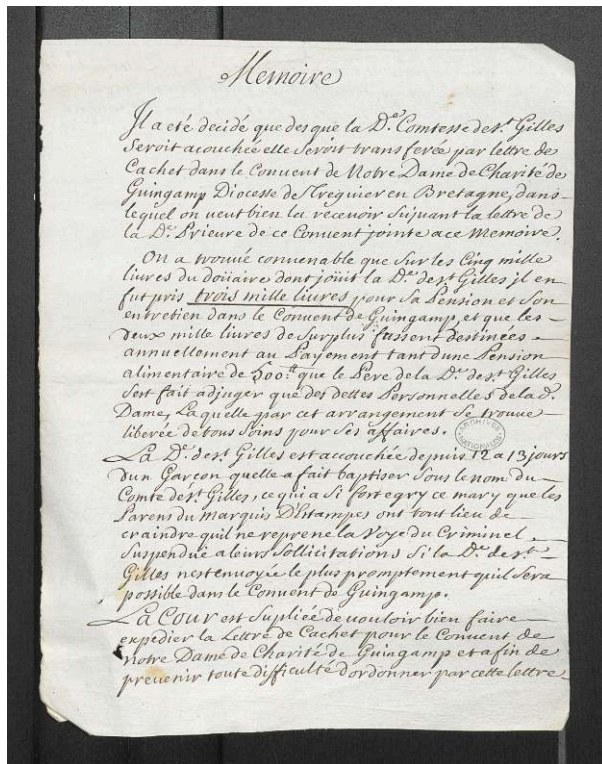 Memoire
Il a eté decidé que des que la D.e Comtesse de S.t Gilles
seroit acouchée elle seroit transferée par lettre de
Cachet dans le Convent de Notre Dame de Charité de
Guingamp Diocesse de Treguier en Bretagne, dans
lequel on veut bien la recevoir suivant la lettre de
la D.e Prieure de ce Convent jointe a ce Memoire.
On a trouvé convenable que sur les Cinq mille
livres du doüaire dont joüit la D.e de S.t Gilles il en
fut pris trois mille livres pour sa Pension et son
entretien dans le Convent de Guingamp, et que les
deux mille livres de surplus fussent destinées
annuellement au Payement tant dune Pension
alimentaire de 500.lt que le Pere de la D.e de S.t Gilles
sest fait adjuger que des dettes Personnelles de la d.e
Dame, La quelle par cet arrangement se trouve
liberée de tous soins pour ses affaires.
ARCHIVES NATIONALES
La D.e de S.t Gilles est accouchée depuis 12 a 13 jours
dun Garçon quelle a fait baptiser sous le nom du
Comte de S.t Gilles, ce qui a si fort egry ce mary que les
Parens du Marquis D'Estampes ont tout lieu de
craindre quil ne reprene la Voye du Criminel
suspendüe a leurs sollicitations si la D.e de S.t
Gilles nest envoyée le plus promptement quil sera
possible dans le Convent de Guingamp.
La Cour est supliée de vouloir bien faire
expedier la Lettre de Cachet pour le Convent de
notre Dame de Charité de Guingamp et afin de
prevenir toute difficulté dordonner par cette lettre